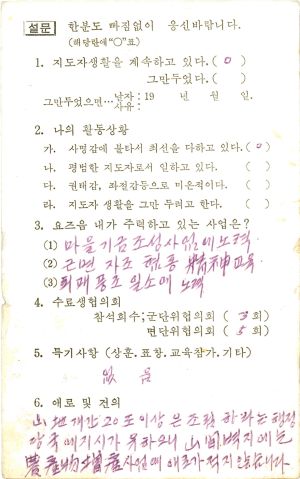 설문 한분도 빠짐없이 응신바랍니다.
(해당란에 "○"표)
1. 지도자생활을 계속하고 있다. ( ○ )
그만두었다. ( )
그만두었으면… 날자 : 19 년 월 일.
사유 :
2. 나의 활동상황
가. 사명감에 불타서 최선을 다하고 있다. ( ○ )
나. 평범한 지도자로서 일하고 있다. ( )
다. 권태감, 좌절감등으로 미온적이다. ( )
라. 지도자 생활을 그만 두려고 한다. ( )
3. 요즈음 내가 주력하고 있는 사업은?
(1) 마을기금조성사업에 노력.
(2) 근면 자조 협동 精神교육
(3) 퇴폐풍조 일소에 노력
4. 수료생협의회
참석회수; 군단위협의회 ( 3 회)
면단위협의회 ( 5 회)
5. 특기사항 (상훈. 표창. 교육참가. 기타)
없음
6. 애로 및 건의
山地개간 20도이상은 조림하라는 행정
당국에 지시가 有하오니 山間벽지에는
農産物增産사업에 애로가 적지않습니다